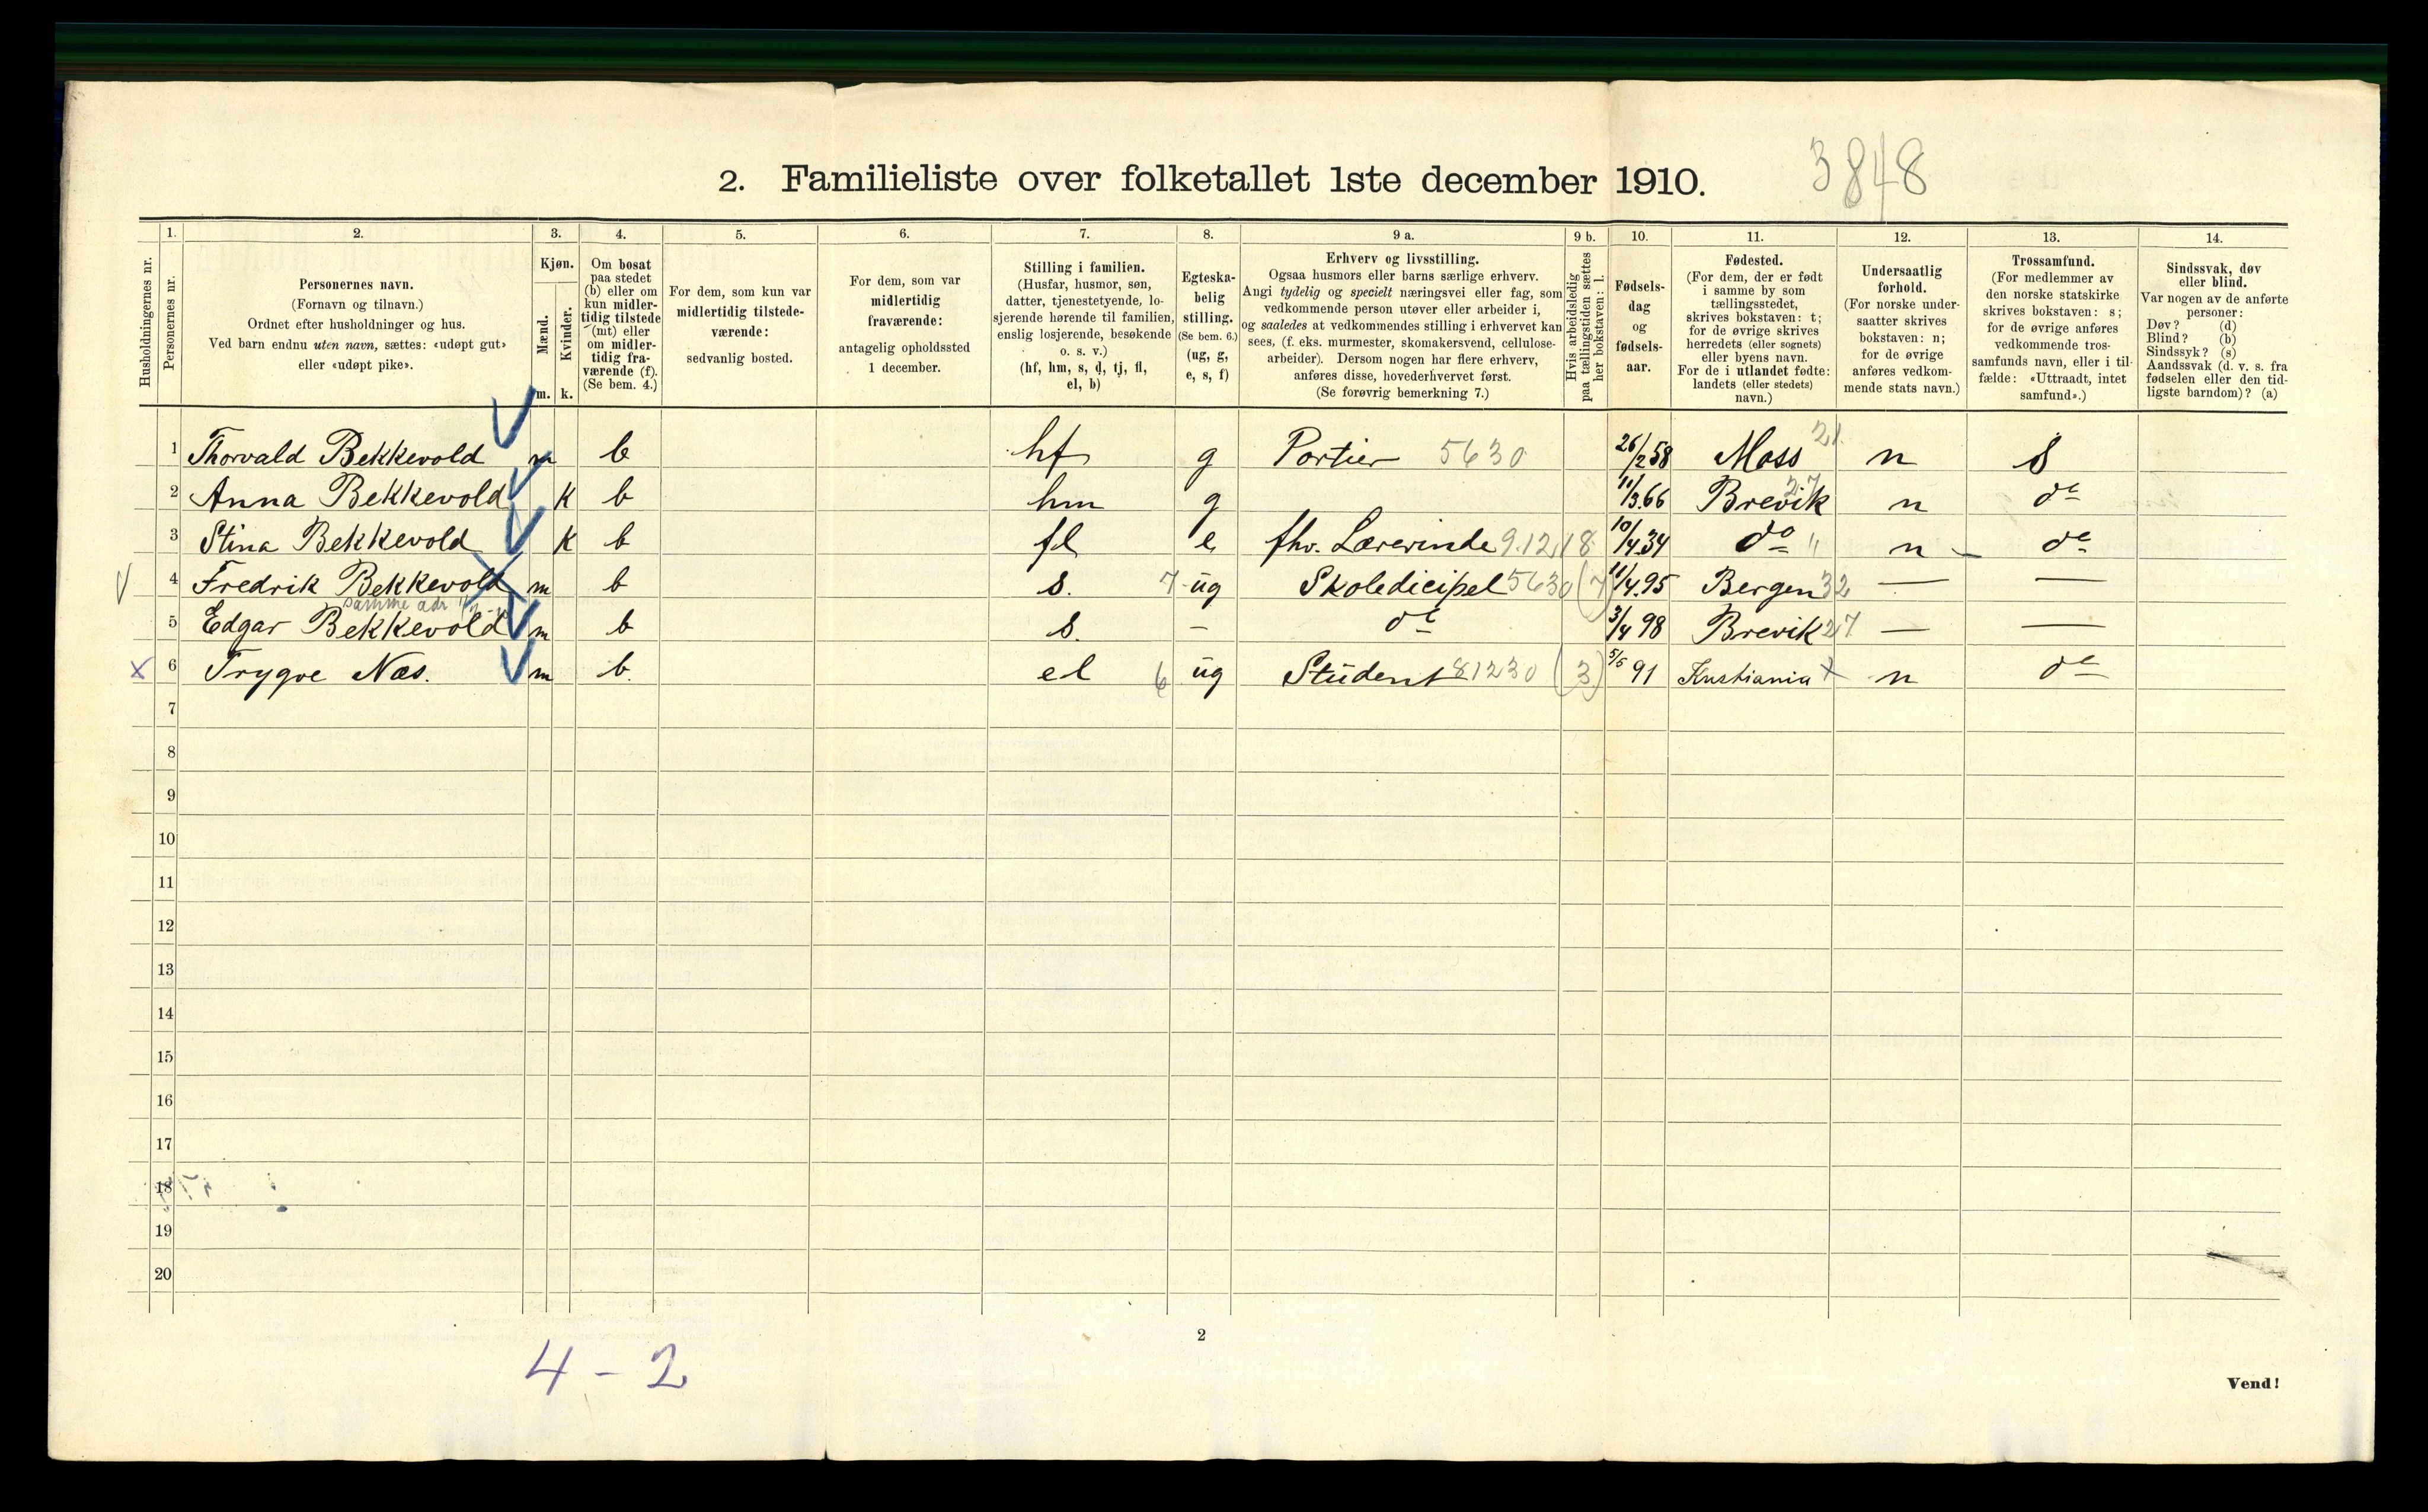 2. Familieliste over folketallet 1ste december 1910. 3848
Husholdningernes nr.
1. Personernes nr.
2. Personernes navn.
(Fornavn og tilnavn.)
Ordnet efter husholdninger og hus.
Ved barn endnu uten navn, sættes: «udøpt gut»
eller «udøpt pike».
3. Kjøn.
Mænd. m.
Kvinder. k.
4. Om bosat
paa stedet
(b) eller om
kun midler-
tidig tilstede
(mt) eller
om midler-
tidig fra-
værende (f).
(Se bem. 4.)
5. For dem, som kun var
midlertidig tilstede-
værende:
sedvanlig bosted.
6. For dem, som var
midlertidig
fraværende:
antagelig opholdssted
1 december.
7. Stilling i familien.
(Husfar, husmor, søn,
datter, tjenestetyende, lo-
sjerende hørende til familien,
enslig losjerende, besøkende
o. s. v.)
(hf, hm, s, d, tj, fl,
el, b)
8. Egteska-
belig
stilling.
(Se bem. 6.)
(ug, g,
e, s, f)
9 a. Erhverv og livsstilling.
Ogsaa husmors eller barns særlige erhverv.
Angi tydelig og specielt næringsvei eller fag, som
vedkommende person utøver eller arbeider i,
og saaledes at vedkommendes stilling i erhvervet kan
sees, (f. eks. murmester, skomakersvend, cellulose-
arbeider). Dersom nogen har flere erhverv,
anføres disse, hovederhvervet først.
(Se forøvrig bemerkning 7.)
9 b. Hvis arbeidsledig
paa tællingstiden sættes
her bokstaven: l.
10. Fødsels-
dag
og
fødsels-
aar.
11. Fødested.
(For dem, der er født
i samme by som
tællingsstedet,
skrives bokstaven: t;
for de øvrige skrives
herredets (eller sognets)
eller byens navn.
For de i utlandet fødte:
landets (eller stedets)
navn.)
12. Undersaatlig
forhold.
(For norske under-
saatter skrives
bokstaven: n;
for de øvrige
anføres vedkom-
mende stats navn.)
13. Trossamfund.
(For medlemmer av
den norske statskirke
skrives bokstaven: s;
for de øvrige anføres
vedkommende tros-
samfunds navn, eller i til-
fælde: «Uttraadt, intet
samfund».)
14. Sindssvak, døv
eller blind.
Var nogen av de anførte
personer:
Døv? (d)
Blind? (b)
Sindssyk? (s)
Aandssvak (d. v. s. fra
fødselen eller den tid-
ligste barndom)? (a)
1 Thorvald Bekkevold m b hf g Portier 5630 26/2 58 Moss 21 n s
2 Anna Bekkevold k b hm g 11/3.66 Brevik 27 n do
3 Stina Bekkevold k b fl e fhv. Lærerinde 9.12.18 10/4.34 do " n - do
4 Fredrik Bekkevold m b s. 7 ug Skoledicipel 5630 (7) 11/4.95 Bergen 32 — —
samme adr
5 Edgar Bekkevold m b s. — do 3/4 98 Brevik 27 — —
x 6 Trygve Næs. m b. el 6 ug Student 81230 (3) 5/5 91 Kristiania x n do
7
8
9
10
11
12
13
14
15
16
17
18
19
20
2
4 - 2
Vend!